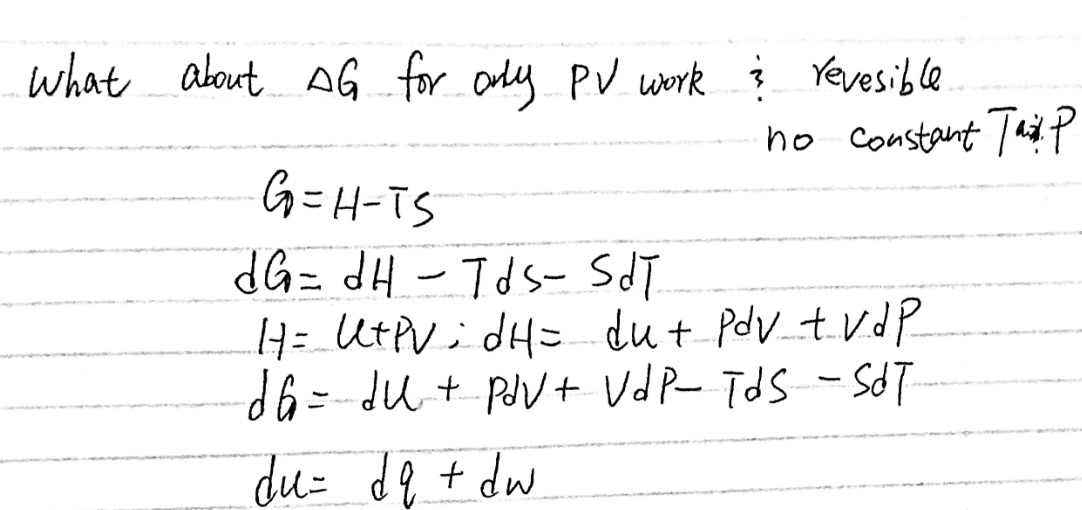 What about ΔG for only PV work & revesible
no constant T and P
G=H-TS
dG= dH - Tds- SdT
H= U+PV ; dH= du + Pdv + vdP
dG= du + pdv + VdP- TdS - SdT
du= dq + dw